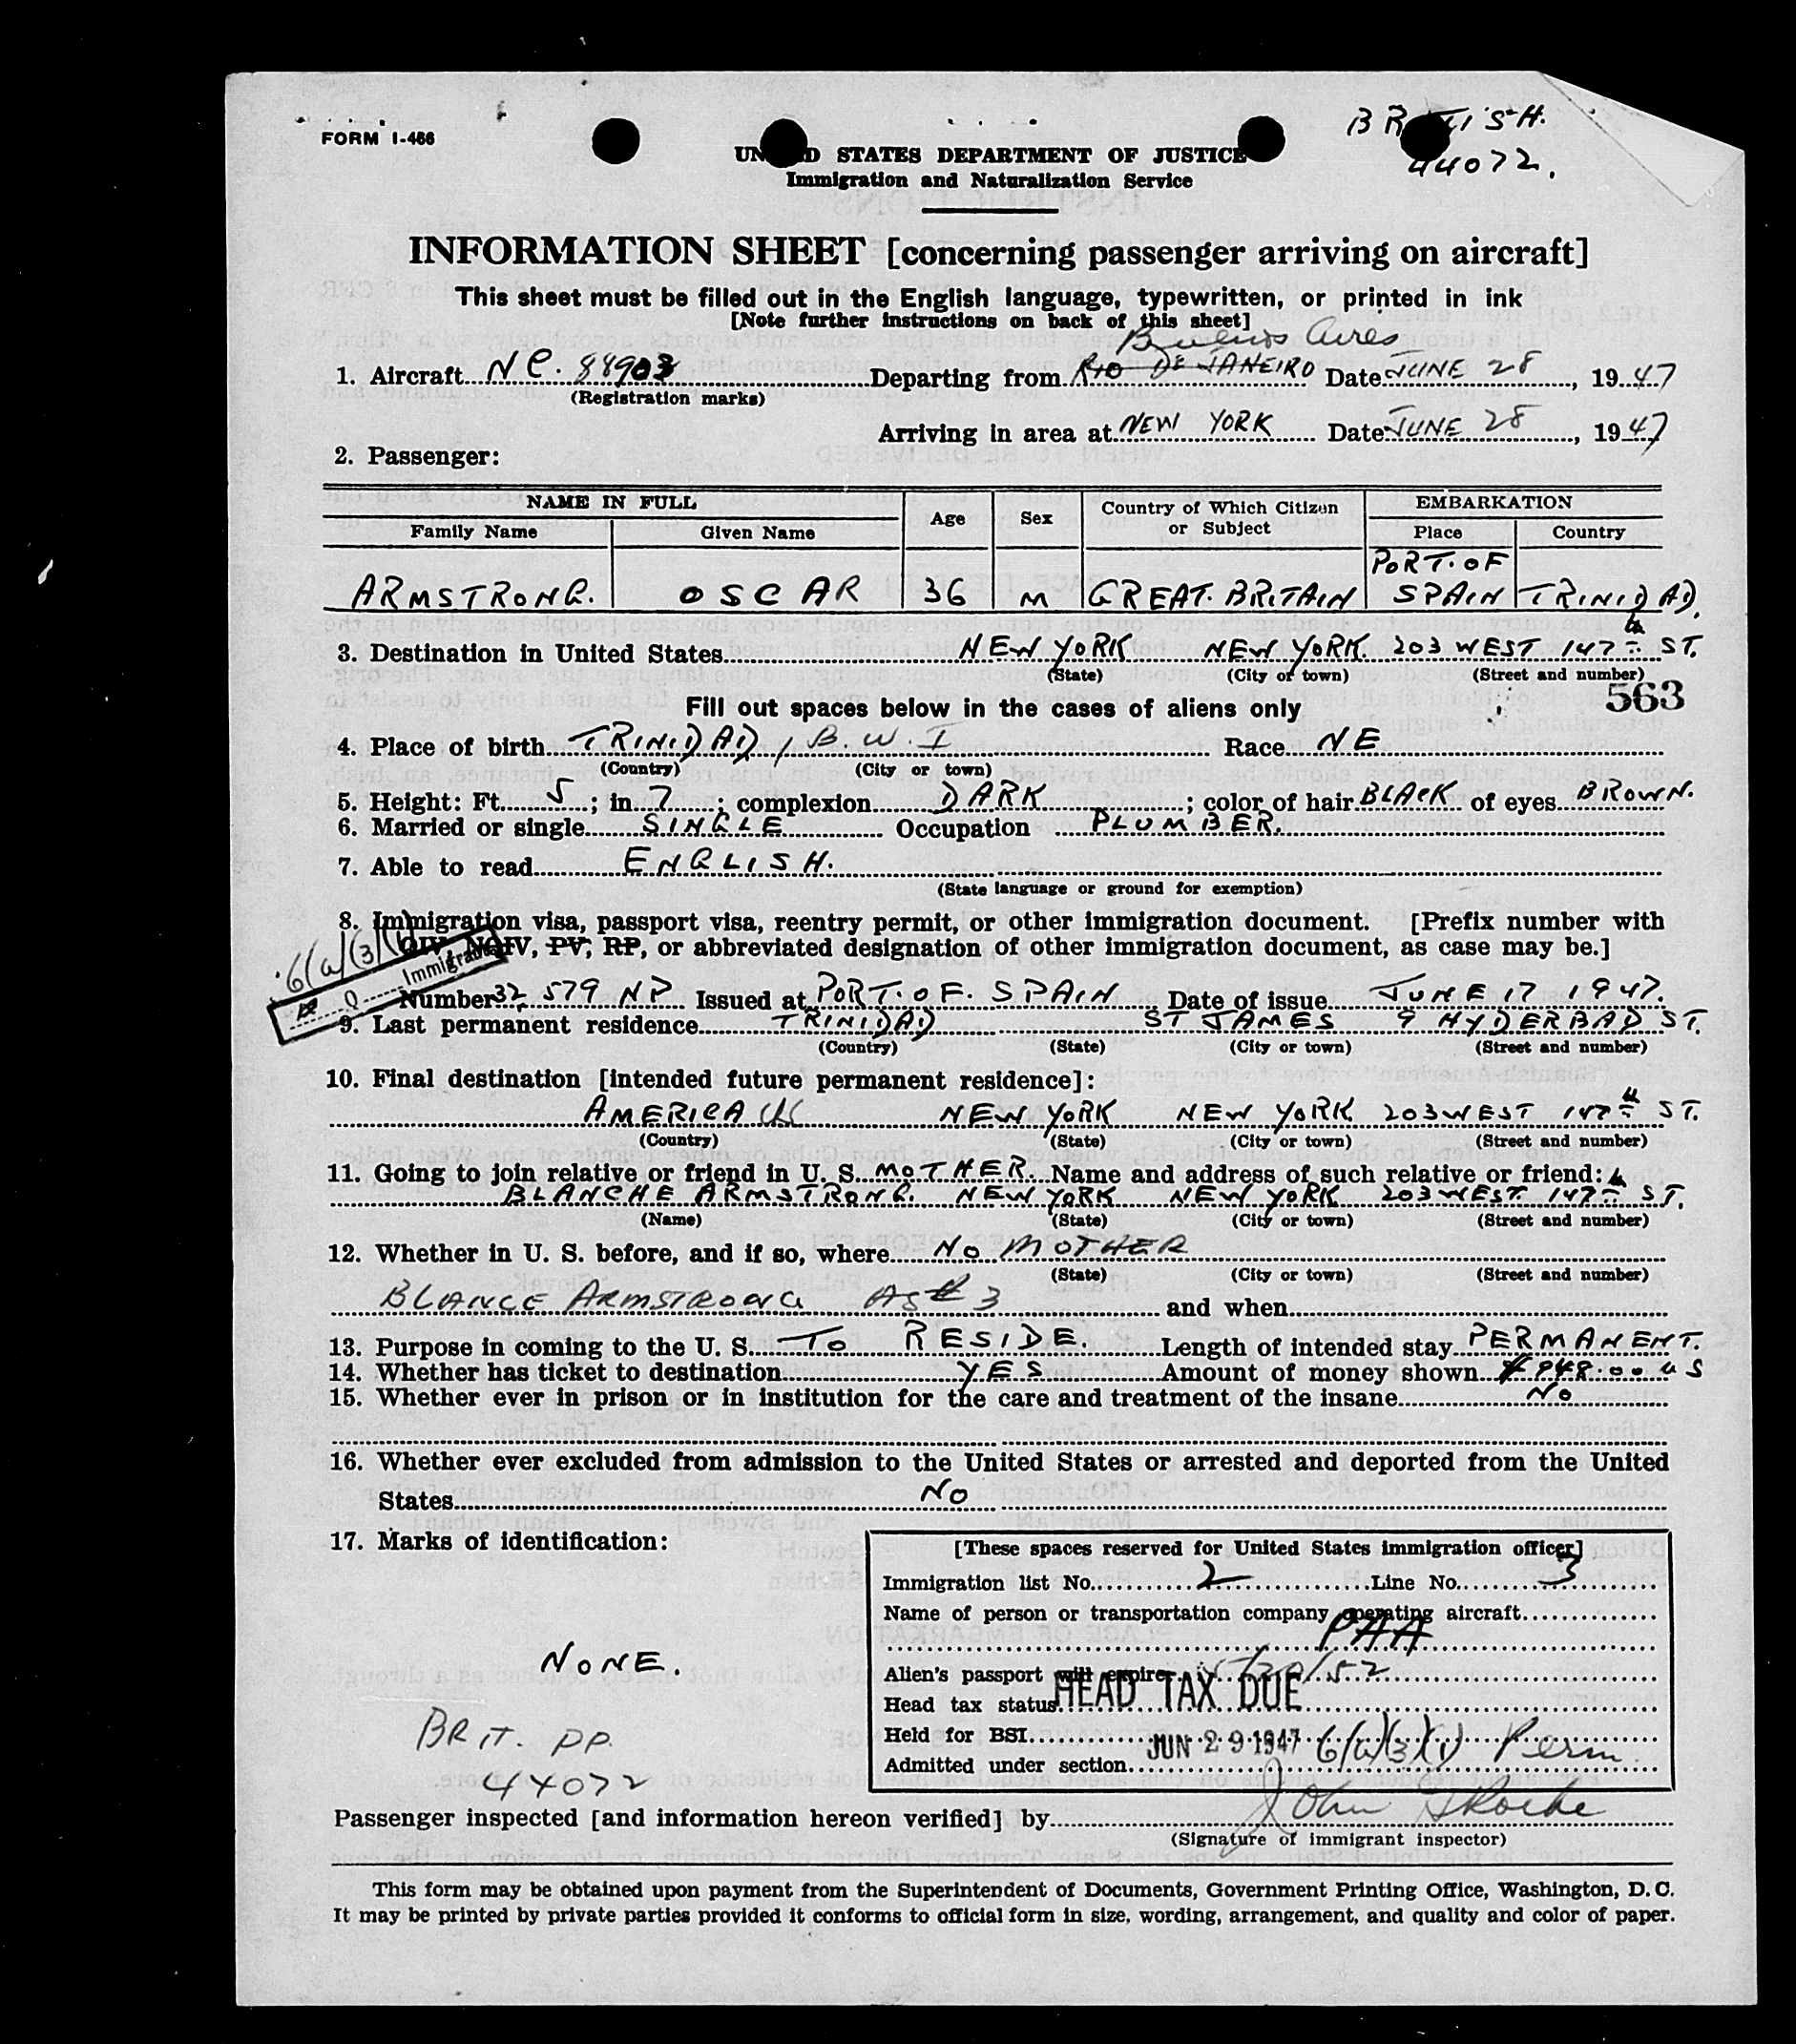 FORM I-466
BRITISH.
44072.
UNITED STATES DEPARTMENT OF JUSTICE
Immigration and Naturalization Service
INFORMATION SHEET [concerning passenger arriving on aircraft]
This sheet must be filled out in the English language, typewritten, or printed in ink
[Note further instructions on back of this sheet]
Buenos Aires
1. Aircraft NC. 88903 Departing from RIO DE JANEIRO Date JUNE 28, 1947
(Registration marks)
Arriving in area at NEW YORK Date JUNE 28, 1947
2. Passenger:
NAME IN FULL Age Sex Country of Which Citizen or Subject EMBARKATION
Family Name Given Name Place Country
PORT.OF
ARMSTRONG. OSCAR 36 M GREAT. BRITAIN SPAIN TRINIDAD.
3. Destination in United States NEW YORK NEW YORK. 203 WEST 147th ST.
(State) (City or town) (Street and number)
563
Fill out spaces below in the cases of aliens only
4. Place of birth TRINIDAD, B.W.I Race NE
(Country) (City or town)
5. Height: Ft. 5; in. 7; complexion DARK; color of hair BLACK of eyes BROWN.
6. Married or single SINGLE Occupation PLUMBER.
7. Able to read ENGLISH.
(State language or ground for exemption)
8. Immigration visa, passport visa, reentry permit, or other immigration document. [Prefix number with
QIV, NQIV, PV, RP, or abbreviated designation of other immigration document, as case may be.]
6(a)(3)(1)
Immigration
Number 32579 NP Issued at PORT.OF. SPAIN Date of issue JUNE 17 1947.
9. Last permanent residence TRINIDAD ST JAMES 9 HYDERBAD ST.
(Country) (State) (City or town) (Street and number)
10. Final destination [intended future permanent residence]:
AMERICA US NEW YORK NEW YORK 203 WEST 147th ST.
(Country) (State) (City or town) (Street and number)
11. Going to join relative or friend in U. S. MOTHER. Name and address of such relative or friend:
BLANCHE ARMSTRONG. NEW YORK NEW YORK 203 WEST 147th ST.
(Name) (State) (City or town) (Street and number)
12. Whether in U. S. before, and if so, where NO MOTHER
(State) (City or town) (Street and number)
BLANCE ARMSTRONG AS # 3 and when
13. Purpose in coming to the U. S. TO RESIDE. Length of intended stay PERMANENT.
14. Whether has ticket to destination YES Amount of money shown $ 948.00 US
15. Whether ever in prison or in institution for the care and treatment of the insane NO
16. Whether ever excluded from admission to the United States or arrested and deported from the United
States NO
17. Marks of identification:
NONE.
BRIT. PP.
44072
[These spaces reserved for United States immigration officer]
Immigration list No. 2 Line No. 3
Name of person or transportation company operating aircraft
PAA
Alien's passport will expire /52
Head tax status HEAD TAX DUE
Held for BSI
Admitted under section JUN 29 1947 6(a)(3)(1) Perm.
Passenger inspected [and information hereon verified] by John
(Signature of immigrant inspector)
This form may be obtained upon payment from the Superintendent of Documents, Government Printing Office, Washington, D. C.
It may be printed by private parties provided it conforms to official form in size, wording, arrangement, and quality and color of paper.